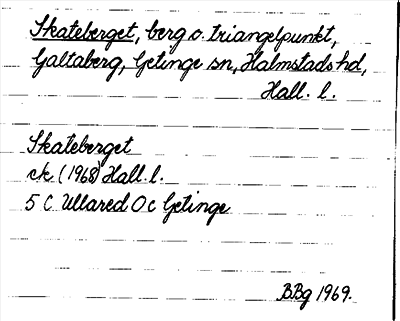 Skateberget, berg o. triangelpunkt,
Galtaberg, Getinge sn, Halmstads hd,
Hall. l.
Skateberget
ek (1968) Hall. l.
5 C Ullared O c Getinge
BBg 1969.